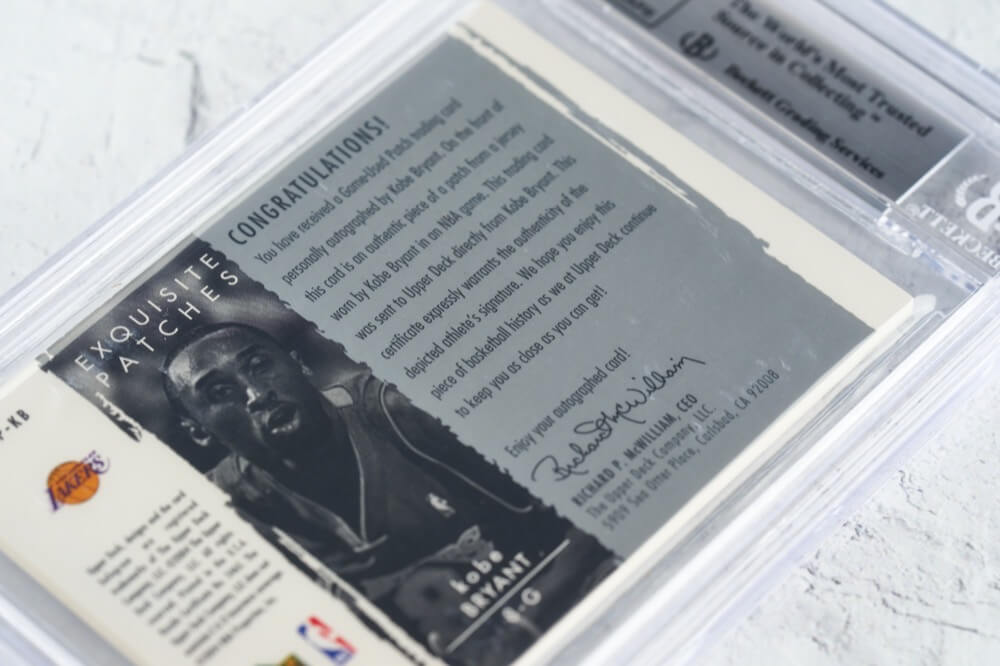 The World's Most Trusted
Source in Collecting™
Beckett Grading Services
BECKETT
CONGRATULATIONS!
You have received a Game-Used Patch trading card
personally autographed by Kobe Bryant. On the front of
this card is an authentic piece of a patch from a jersey
worn by Kobe Bryant in an NBA game. This trading card
was sent to Upper Deck directly from Kobe Bryant. This
certificate expressly warrants the authenticity of the
depicted athlete's signature. We hope you enjoy this
piece of basketball history as we at Upper Deck continue
to keep you as close as you can get!
Enjoy your autographed card!
Richard McWilliam
RICHARD P. McWILLIAM, CEO
The Upper Deck Company, LLC.
5909 Sea Otter Place, Carlsbad, CA 92008
EXQUISITE
PATCHES
kobe
BRYANT
8-G
-KB
LAKERS